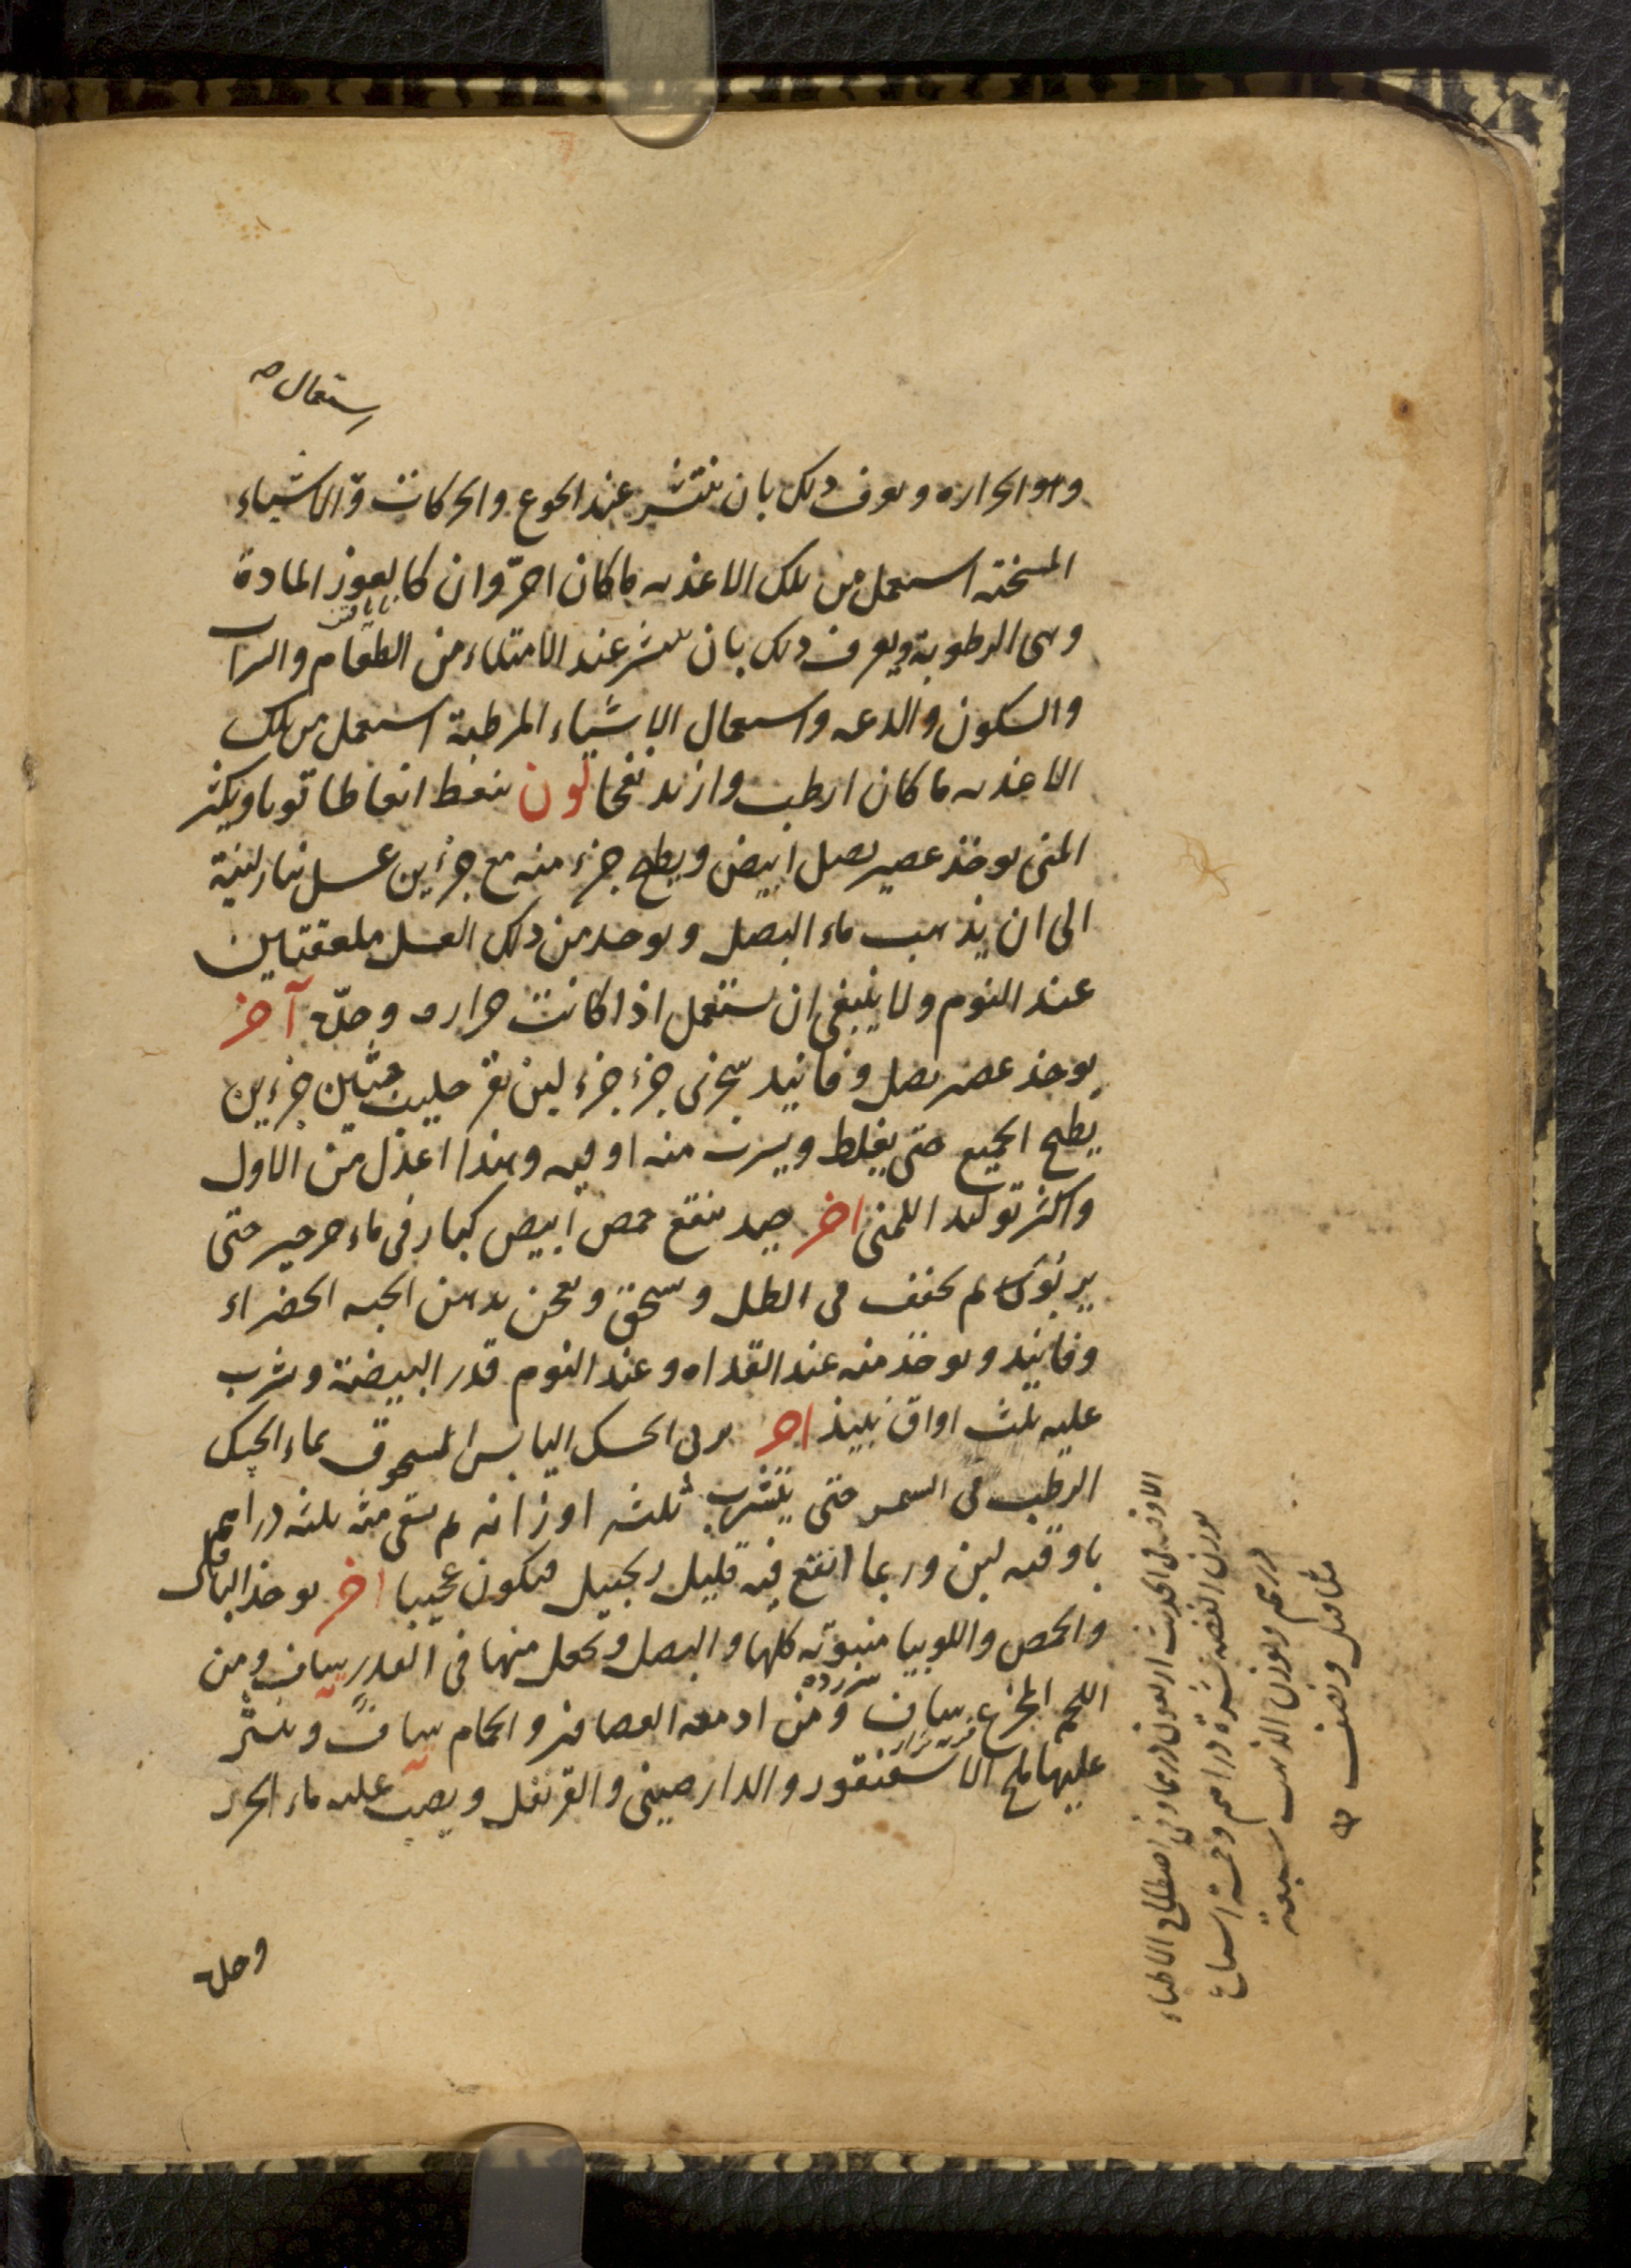 ستعمال صح
وهو الحراره ويعرف ذلك بان ينتشر عند الجوع والحركات و الاشياء
المسخنه استعمل من تلك الاغذيه ما كان احرّ وان كان يعوز المادة
وهي الرطوبة ويعرف ذلك بان ينتشر عند الامتلاء من الطعام والشراب
والسكون والدعه واستعمال الاشياء المرطبة استعمل من تلك
الاغذيه ما كان ارطب وازيد نفخا لون ينعظ انعاظا قويا ويكثر
المني يوخذ عصير بصل ابيض ويطبخ جزء منه مع جزءين عسل بنار لينة
الى ان يذهب ماء البصل ويوخذ من ذلك العسل ملعقتين
عند النوم ولا ينبغي ان يستعمل اذا كانت حراره وحدّه آخر
يوخذ عصير بصل وفانيد سجزى جزء جزء لبن بقر حليب جزءين
يطبخ الجميع حتى يغلظ ويشرب منه اوقيه وهذا اعدل من الاول
واكثر توليد اللمنى اخر جيد ينقع حمص ابيض كبار في ماء جرجير حتى
يربو ثم يجفف في الظل ويسحق ويعجن بدهن الحبه الخضراء
وفانيد ويوخذ منه عند الغداه وعند النوم قدر البيضة ويشرب
عليه ثلث اواق نبيذ اخر يربى الحسك اليابس المسحوق بماء الحسك
الرطب في الشمس حتى يتشرب ثلثه اوزانه ثم يسقى منه ثلثه دراهم
باوقيه لبن وربما انقع فيه قليل زنجبيل فيكون عجيبا اخر يوخذ الباقلى
والحمص واللوبيا منبوته كلها والبصل ويجعل منها في القدر ساف ومن
اللحم المجزع ساف ومن ادمغه العصافير والحمام ساف وينثر
عليها ملح الاسقنقور والدارصيني والقرنفل ويصب عليه ماء الجزر
وحده
الاوقيه في الحديث اربعون درهما وفي اصطلاح الاطباء
بوزن الفضه عشرة دراهم وخمسة اسباع
درهم وبوزن الذهب سبعة
مثاقيل ونصف